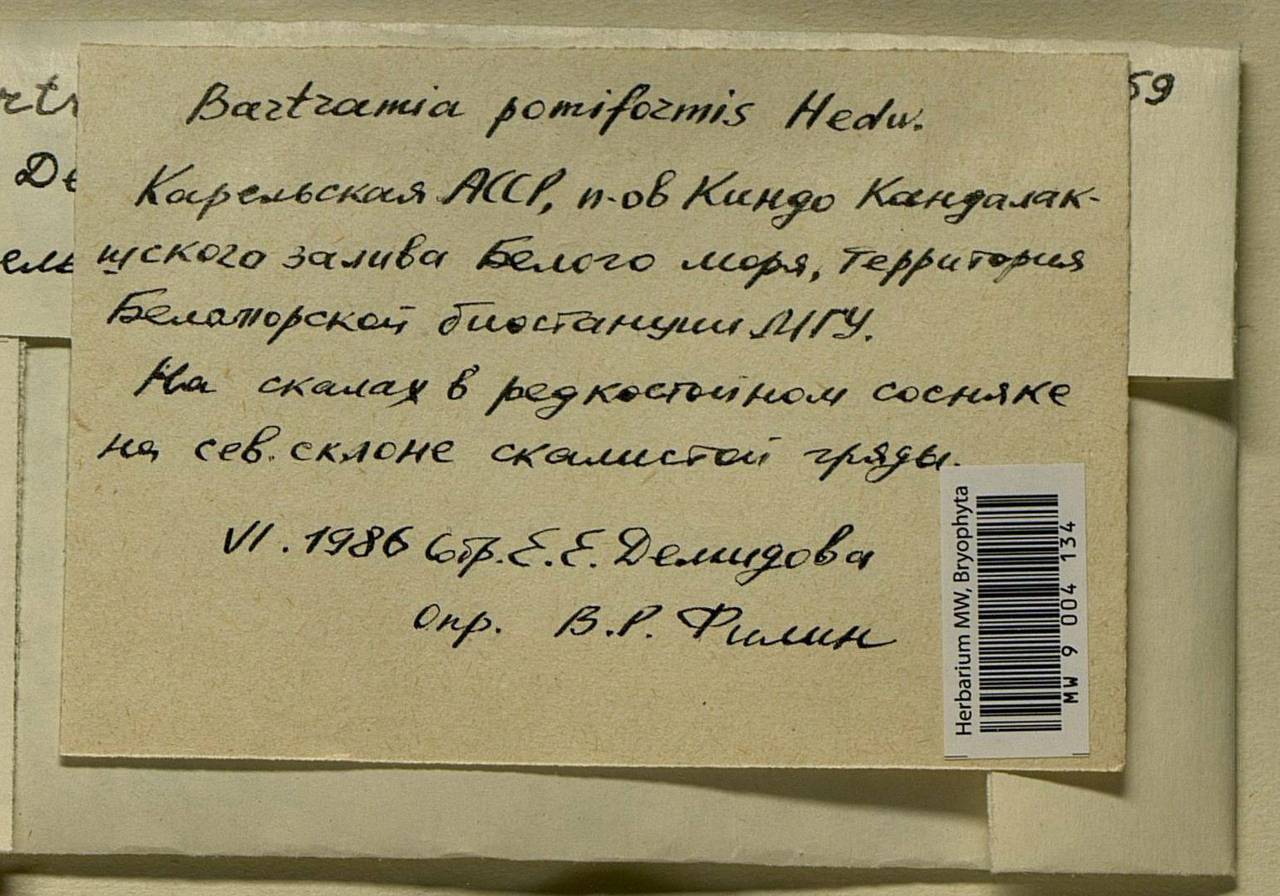 Bartramia pomiformis Hedw.
Карельская АССР, п-ов Киндо Кандалак-
шского залива Белого моря, территория
Беломорской биостанции МГУ.
На скалах в редкостойном сосняке
на сев. склоне скалистой гряды.
VI. 1986 Cобр. Е. Е. Демидова
Опр. В. Р. Филин
Herbarium MW, Bryophyta
MW 9 004 134
59